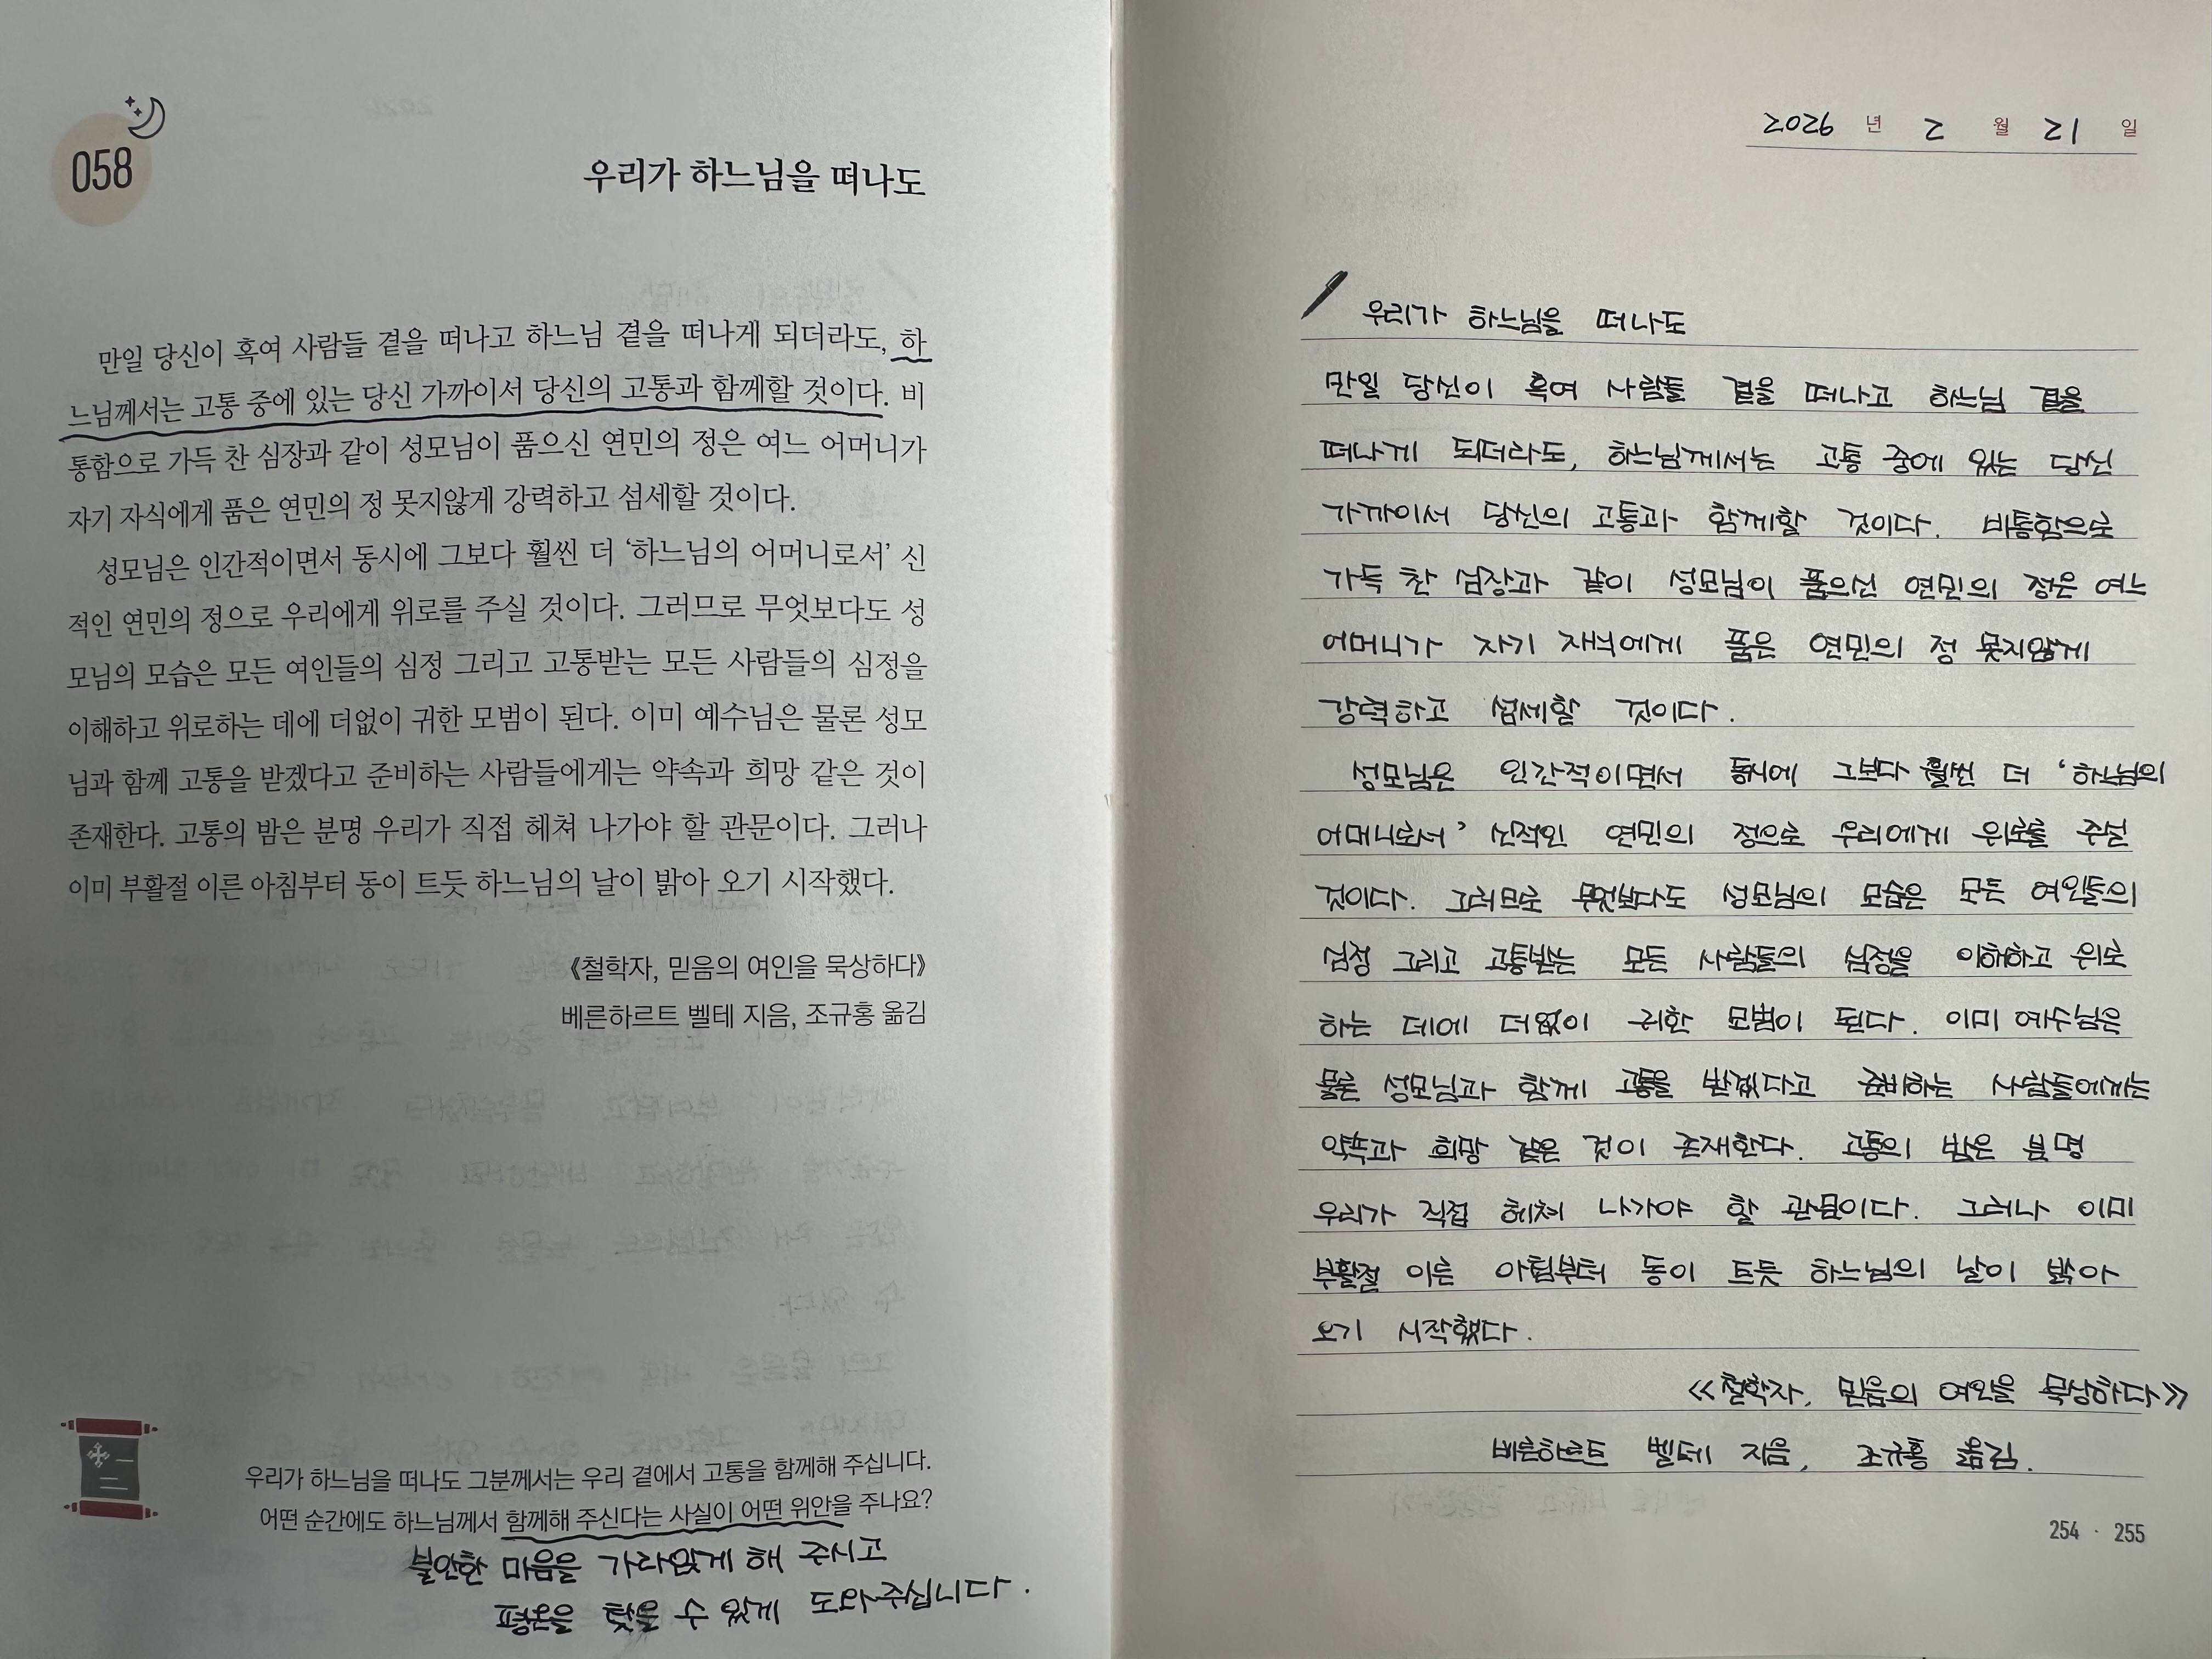 058
우리가 하느님을 떠나도
만일 당신이 혹여 사람들 곁을 떠나고 하느님 곁을 떠나게 되더라도, 하
느님께서는 고통 중에 있는 당신 가까이서 당신의 고통과 함께할 것이다. 비
통함으로 가득 찬 심장과 같이 성모님이 품으신 연민의 정은 여느 어머니가
자기 자식에게 품은 연민의 정 못지않게 강력하고 섬세할 것이다.
성모님은 인간적이면서 동시에 그보다 훨씬 더 ‘하느님의 어머니로서’ 신
적인 연민의 정으로 우리에게 위로를 주실 것이다. 그러므로 무엇보다도 성
모님의 모습은 모든 여인들의 심정 그리고 고통받는 모든 사람들의 심정을
이해하고 위로하는 데에 더없이 귀한 모범이 된다. 이미 예수님은 물론 성모
님과 함께 고통을 받겠다고 준비하는 사람들에게는 약속과 희망 같은 것이
존재한다. 고통의 밤은 분명 우리가 직접 헤쳐 나가야 할 관문이다. 그러나
이미 부활절 이른 아침부터 동이 트듯 하느님의 날이 밝아 오기 시작했다.
《철학자, 믿음의 여인을 묵상하다》
베른하르트 벨테 지음, 조규홍 옮김
우리가 하느님을 떠나도 그분께서는 우리 곁에서 고통을 함께해 주십니다.
어떤 순간에도 하느님께서 함께해 주신다는 사실이 어떤 위안을 주나요?
불안한 마음을 가라앉게 해 주시고
평온을 찾을 수 있게 도와주십니다.
2026 년 2 월 21 일
우리가 하느님을 떠나도
만일 당신이 혹여 사람들 곁을 떠나고 하느님 곁을
떠나게 되더라도, 하느님께서는 고통 중에 있는 당신
가까이서 당신의 고통과 함께할 것이다. 비통함으로
가득 찬 심장과 같이 성모님이 품으신 연민의 정은 여느
어머니가 자기 자식에게 품은 연민의 정 못지않게
강력하고 섬세할 것이다.
성모님은 인간적이면서 동시에 그보다 훨씬 더 ‘하느님의
어머니로서’ 신적인 연민의 정으로 우리에게 위로를 주실
것이다. 그러므로 무엇보다도 성모님의 모습은 모든 여인들의
심정 그리고 고통받는 모든 사람들의 심정을 이해하고 위로
하는 데에 더없이 귀한 모범이 된다. 이미 예수님은
물론 성모님과 함께 고통을 받겠다고 준비하는 사람들에게는
약속과 희망 같은 것이 존재한다. 고통의 밤은 분명
우리가 직접 헤쳐 나가야 할 관문이다. 그러나 이미
부활절 이른 아침부터 동이 트듯 하느님의 날이 밝아
오기 시작했다.
《철학자, 믿음의 여인을 묵상하다》
베른하르트 벨테 지음, 조규홍 옮김.
254 · 255